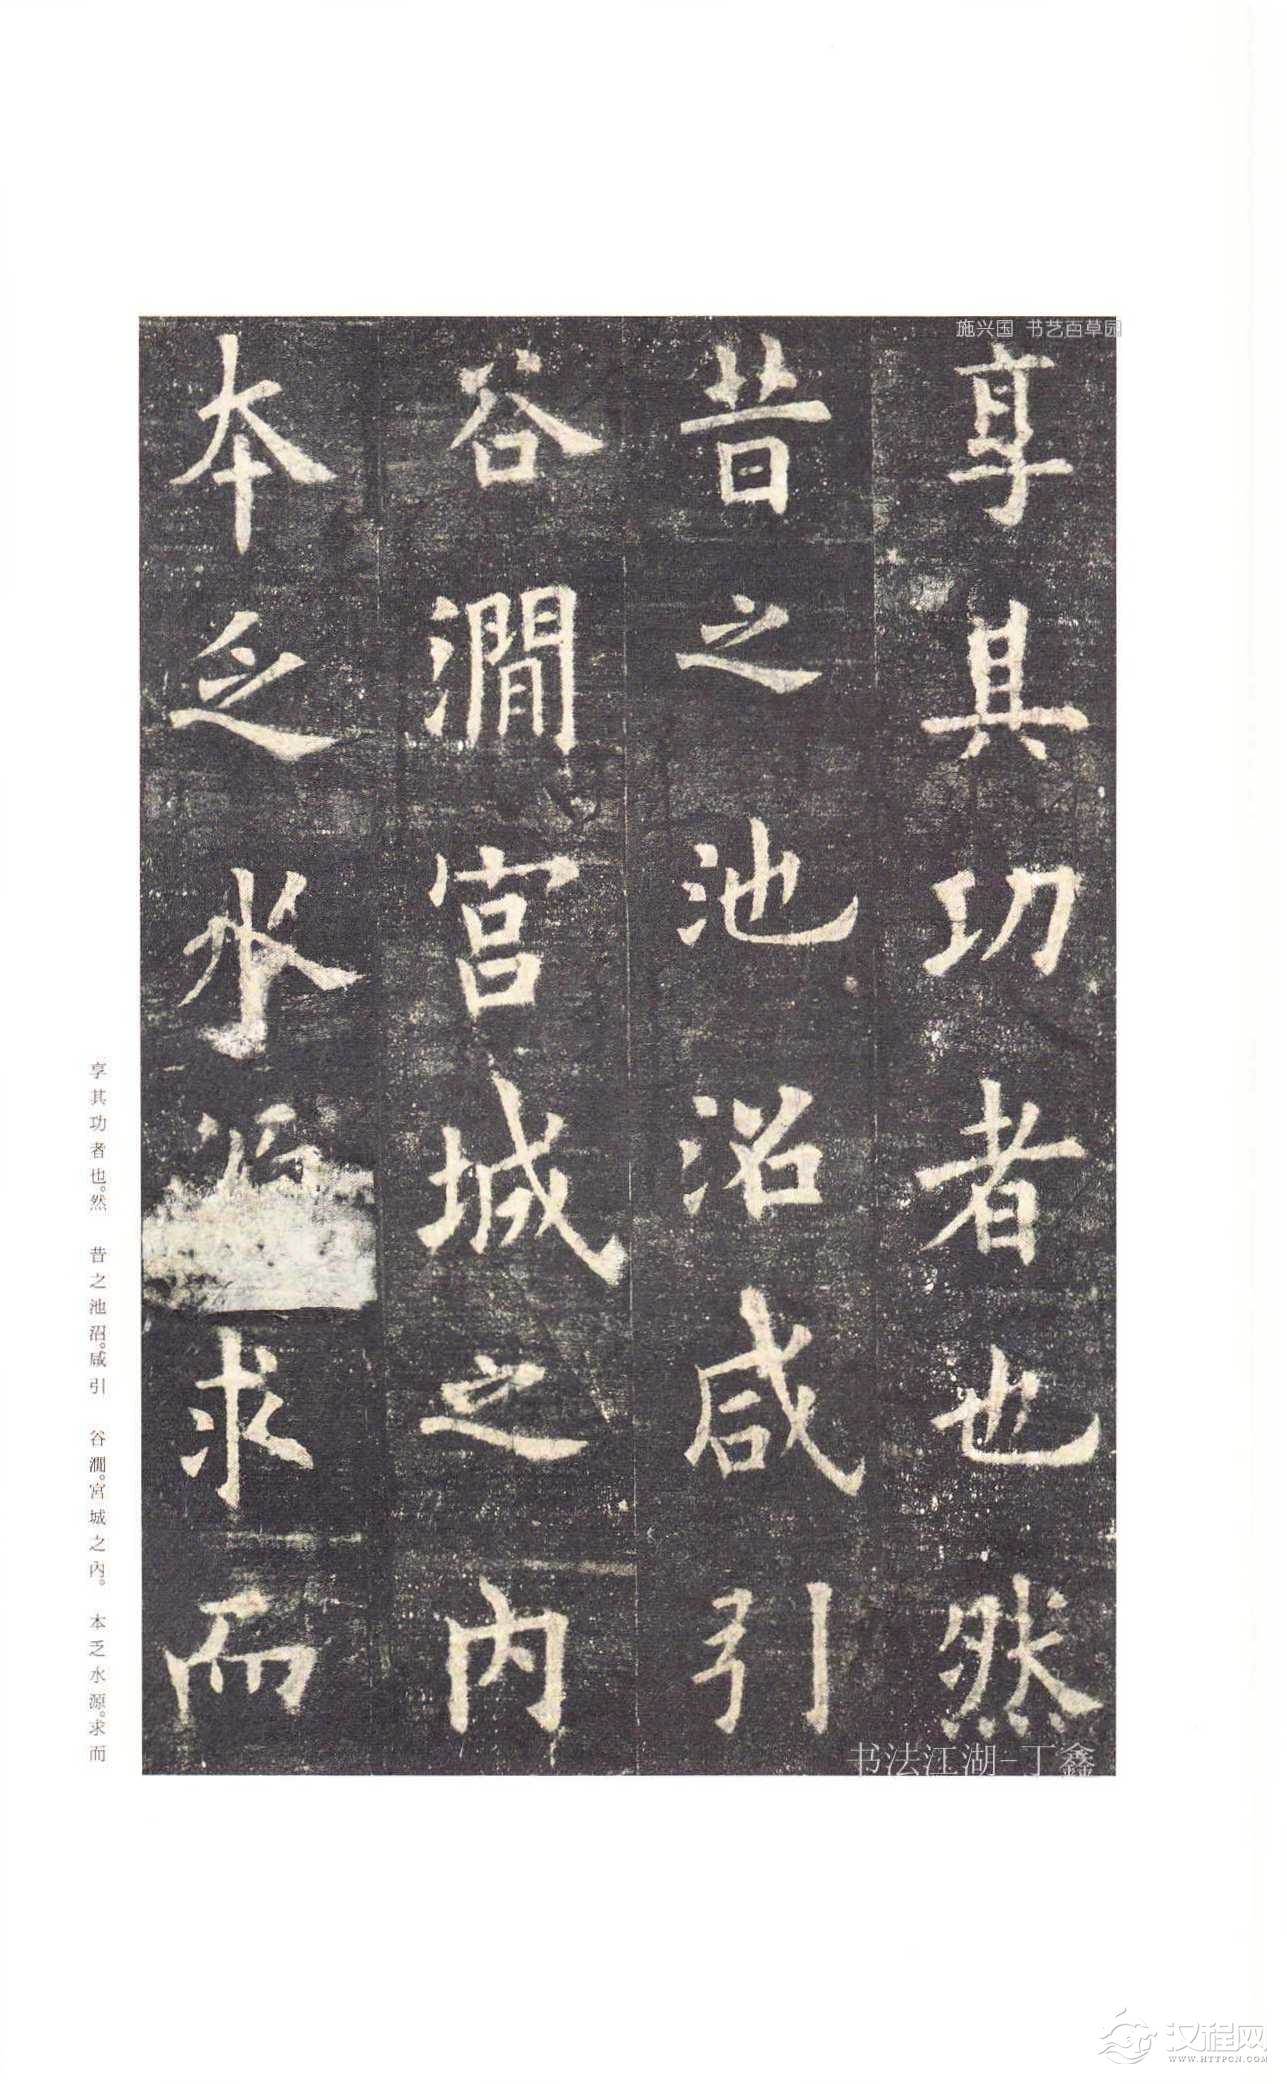 施兴国 书艺百草园
享其功者也然
昔之池沼咸引
谷澗宮城之內
本乏水源求而
书法江湖-丁鑫
享其功者也。然 昔之池沼。咸引 谷澗。宮城之內。 本乏水源。求而
汉程网
WWW.HTTPCN.COM